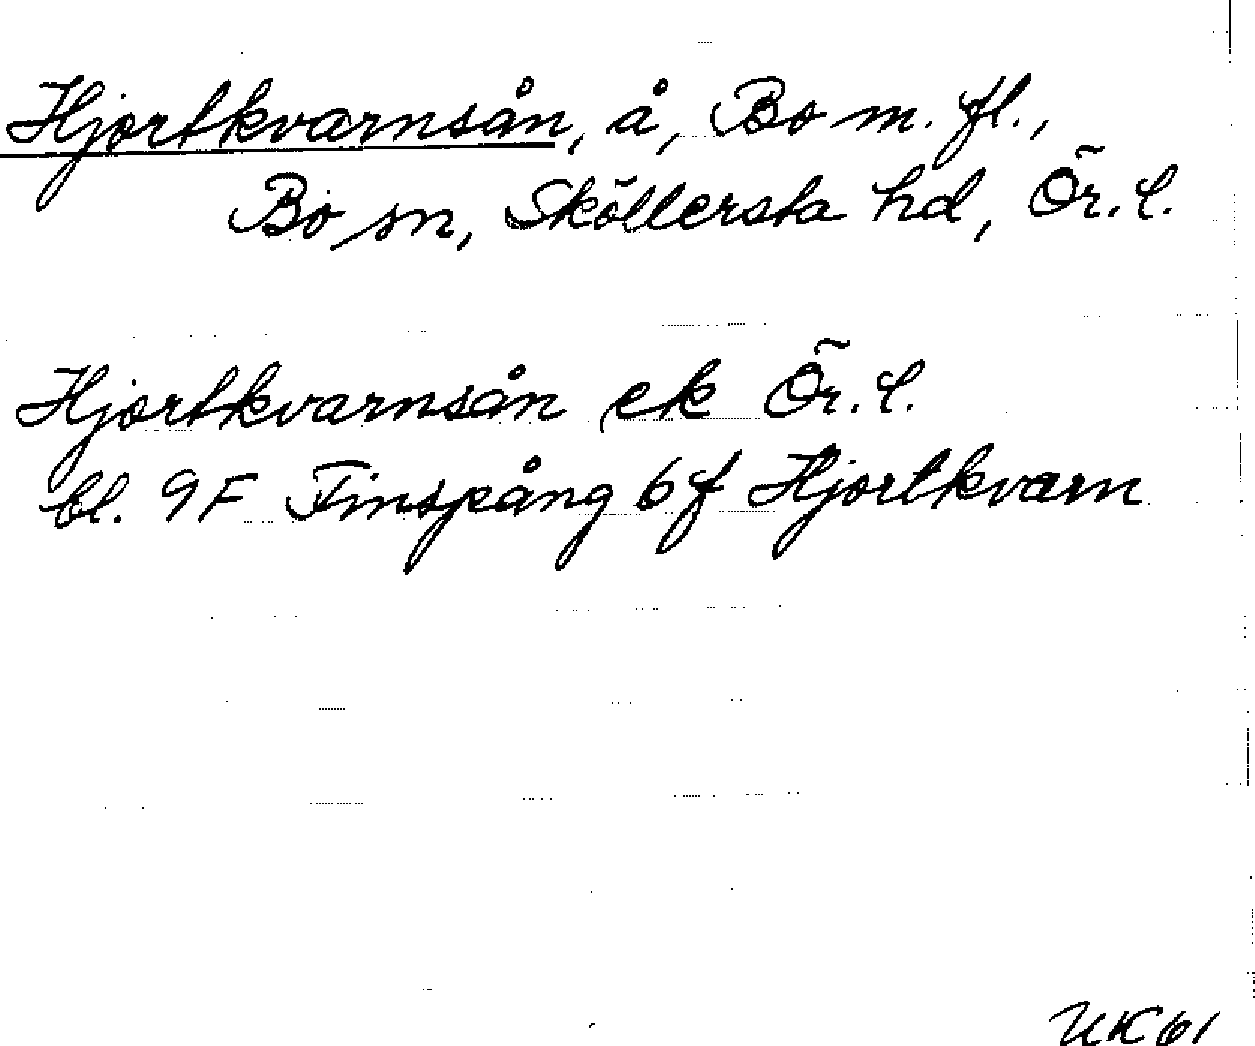 Hjortkvarnsån, å, Bo m. fl.,
Bo sn, Sköllersta hd, Ör. l.
Hjortkvarnsån ek Ör. l.
bl. 9F Finspång 6f Hjortkvarn
UK61